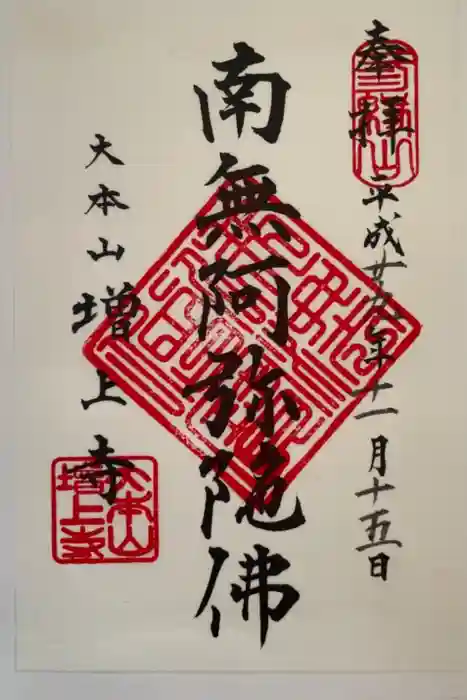 奉拝
平成廿九年十一月十五日
南無阿弥陀佛
大本山
増上寺
大本山
増上寺